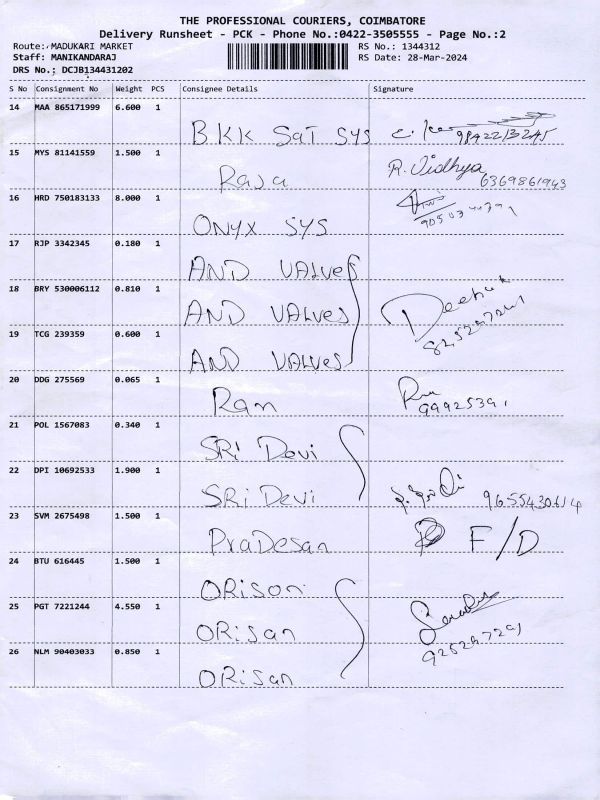 THE PROFESSIONAL COURIERS, COIMBATORE
Delivery Runsheet - PCK - Phone No.:0422-3505555 - Page No.:2
Route: MADUKARI MARKET RS No.: 1344312
Staff: MANIKANDARAJ RS Date: 28-Mar-2024
DRS No.: DCJB134431202
S No Consignment No Weight PCS Consignee Details Signature
14 MAA 865171999 6.600 1
BKK Sai SYS
15 MYS 81141559 1.500 1
Raja R. Vidhya 6369861943
16 HRD 750183133 8.000 1
ONYX SYS
17 RJP 3342345 0.180 1
AND VALVES
18 BRY 530006112 0.810 1
AND VALVES
19 TCG 239359 0.600 1
AND VALVES
20 DDG 275569 0.065 1
Ram
21 POL 1567083 0.340 1
SRI Devi
22 DPI 10692533 1.900 1
SRI Devi 9655430614
23 SVM 2675498 1.500 1
PraDesan F/D
24 BTU 616445 1.500 1
ORison
25 PGT 7221244 4.550 1
ORisan
26 NLM 90403033 0.850 1
ORisan